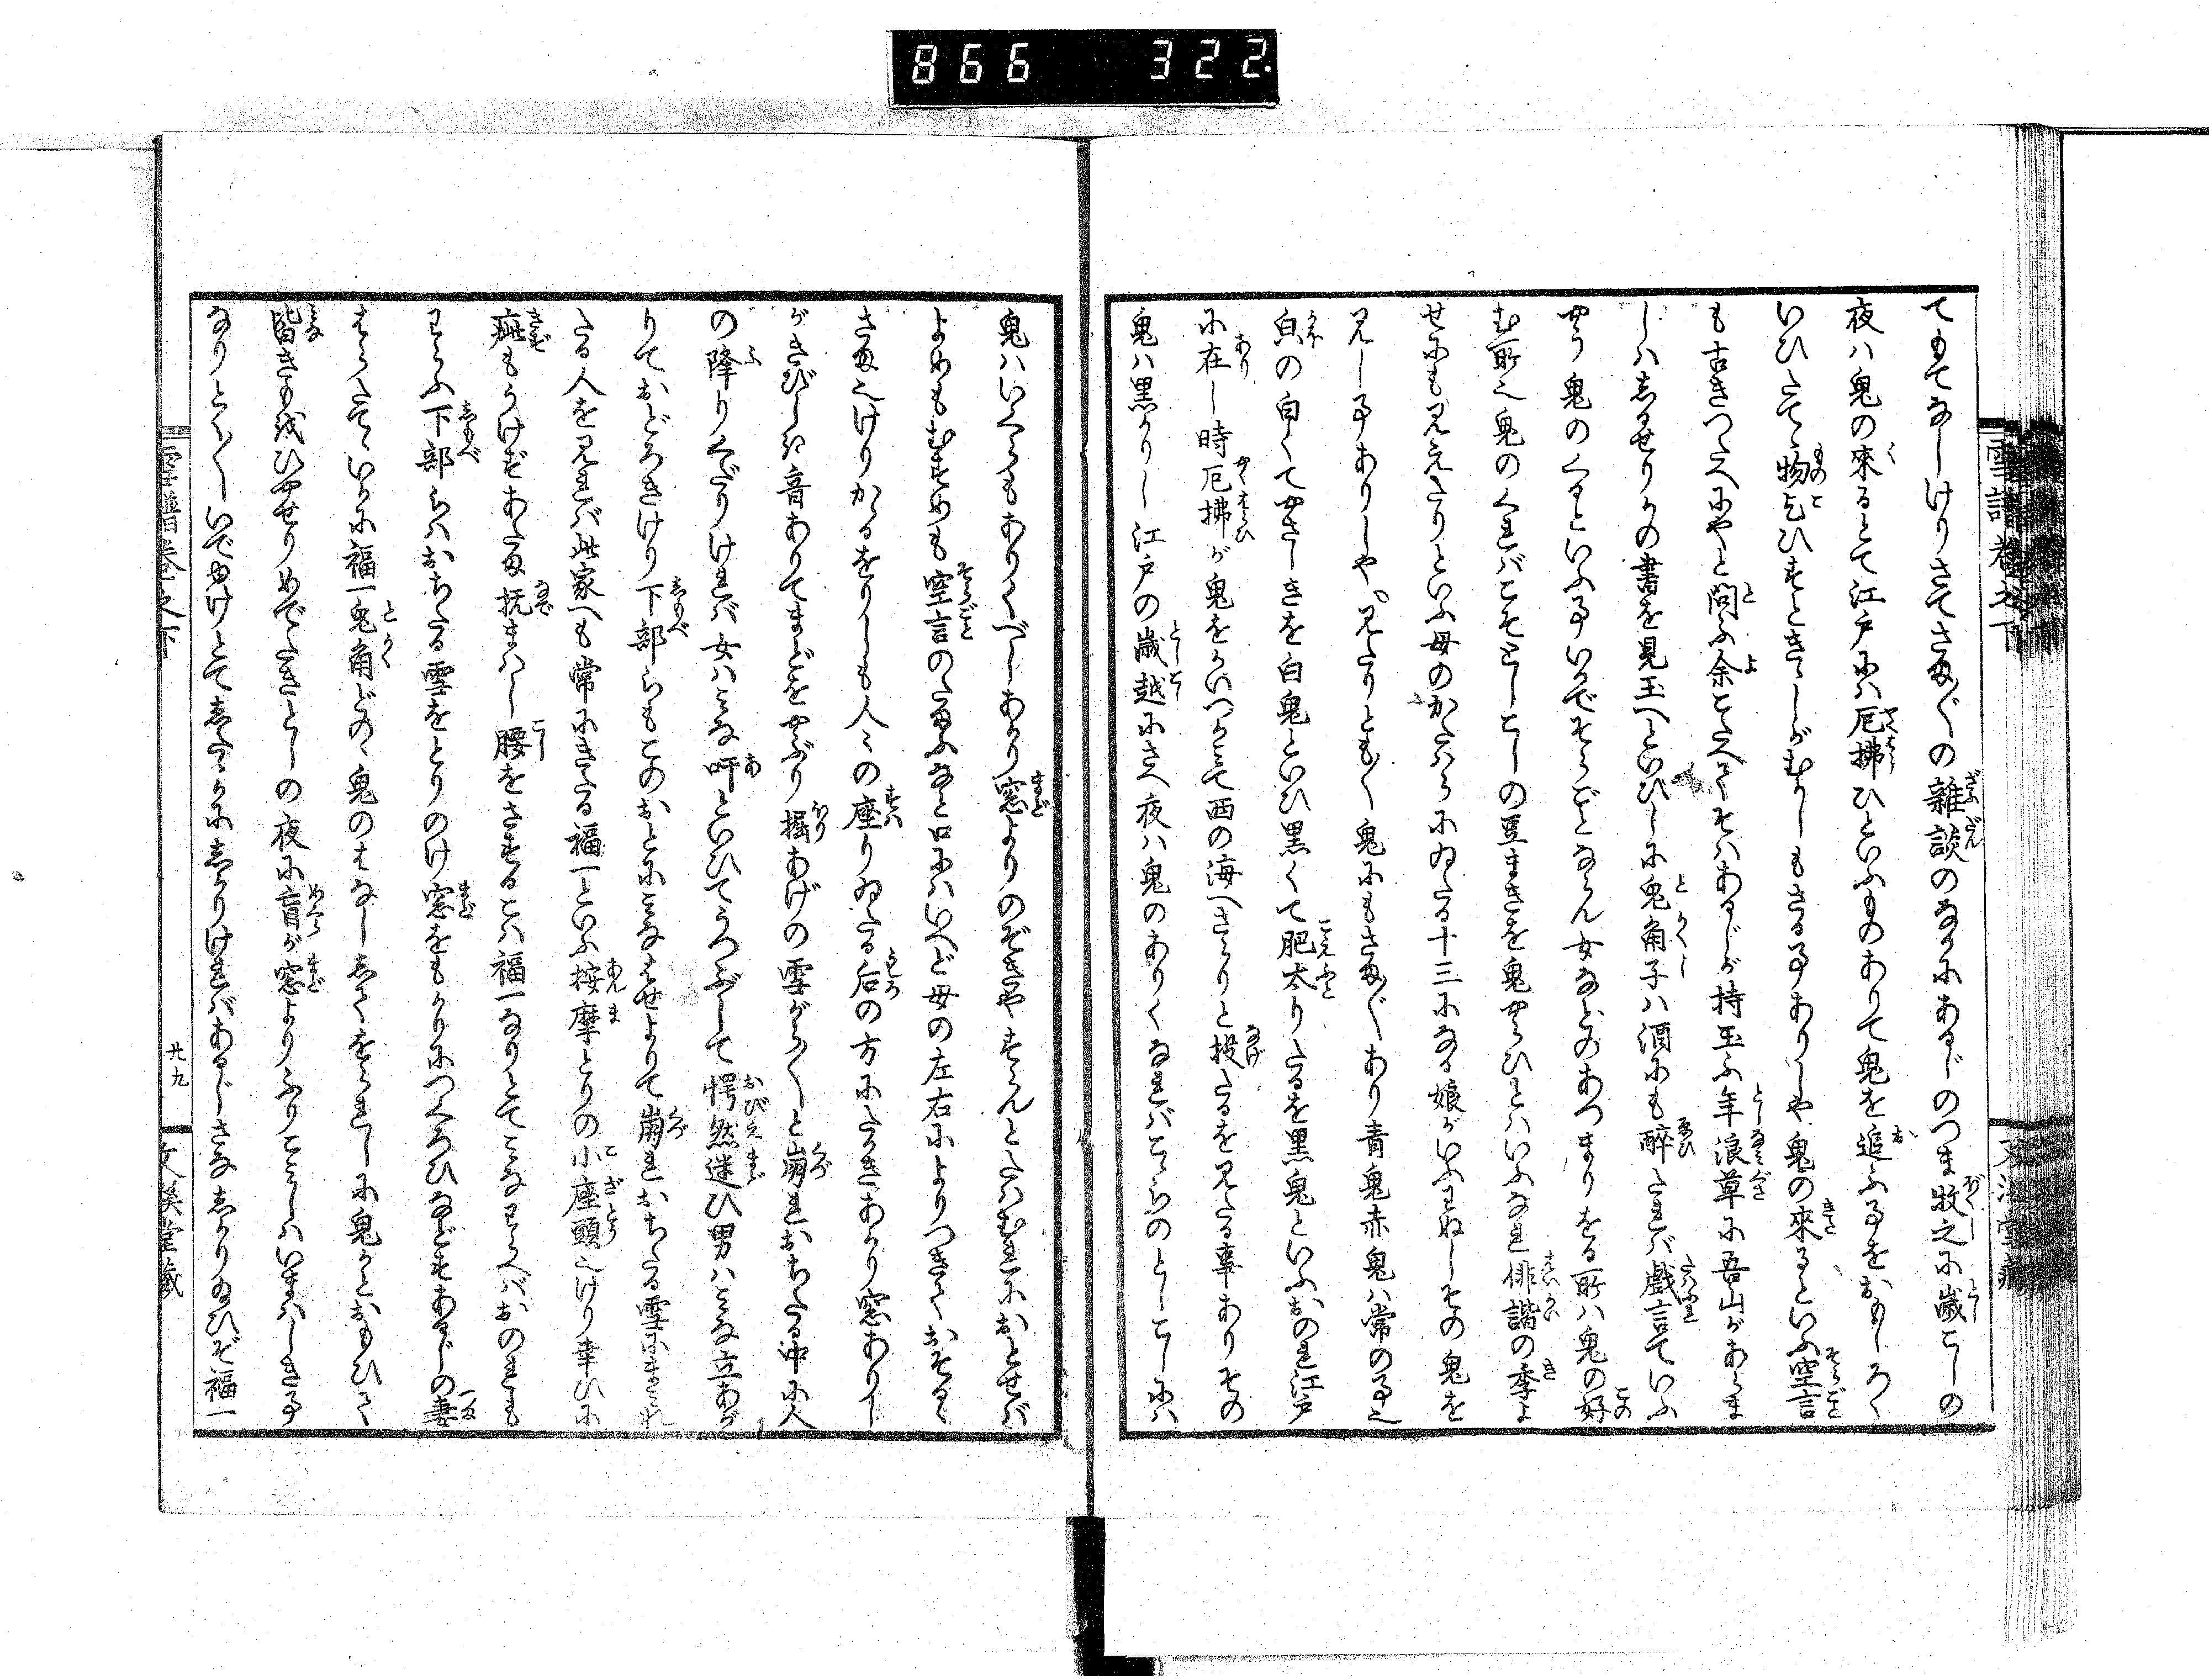 866 322
雪譜巻之下
てもてなしけりさてさま〴〵の雑談のなかにあるじのつま牧之に歳こしの
夜ハ鬼の來るとて江戸にハ厄拂ひといふものありて鬼を追ふ事をおもしろく
いひたて物乞ひすときゝしがむかしもさる事ありしや鬼の來るといふ空言
も古きつたへにやと問ふ余こたへてそハあるじが持玉ふ年浪草に吾山があらま
しハしるせりかの書を見玉へといひしに鬼角子ハ酒にも酔たれバ戯言ていふ
やう鬼のくるといふ事いかでそらごとならん女などのあつまりをる所ハ鬼の好
む所也鬼のくれバこそとしこしの豆まきを鬼やらひとハいふなれ俳諧の季よ
せにも見えたりといふ母のかたハらにゐたる十三になる娘がいふわぬしその鬼を
見し事ありしや見たりとも〳〵鬼にもさま〴〵あり青鬼赤鬼ハ常の事也
㒵の白くてやさしきを白鬼といひ黒くて肥太りたるを黒鬼といふおのれ江戸
に在し時厄拂が鬼をかいつかみて西の海へさらりと投たるを見たる事ありその
鬼ハ黒かりし江戸の歳越にさへ夜ハ鬼のありくなれバこゝらのとしこしにハ
鬼ハいくらもありくべしあかり窓よりのぞきやすらんとたハむれにおとせバ
よめもむすめも空言のたまふなと口にハいへど母の左右によりつきておそるゝ
さま也けりかゝるをりしも人々の座りゐたる后の方にたかきあかり窓ありし
がきびしき音ありてまどをやぶり掘あげの雪がら〳〵と崩れおちたる中に人
の降りくだりけれバ女ハみな吁といひてうつぶして愕然迷ひ男ハみな立あが
りておどろきけり下部らもこのおとにみなはせよりて崩れおちたる雪にまみれ
たる人を見れバ此家へも常にきたる福一といふ按摩とりの小座頭也けり幸ひに
疵もうけずあたま抚まハし腰をさするこハ福一なりとてみなわらへバおのれも
わらふ下部らハおちたる雪をとりのけ窓をもかりにつくろひなどすあるじの妻
はらたていかに福一鬼角どのゝ鬼のはなししてをられしに鬼かとおもひて
皆きも伐ひやせりめでたきとしの夜に盲が窓よりふりこみしハいまハしき事
なりとく〳〵いでゆけとてしたゝかにしかりけれバあるじさなしかりゐひぞ福一
雪譜巻之下
廿九
文溪堂蔵